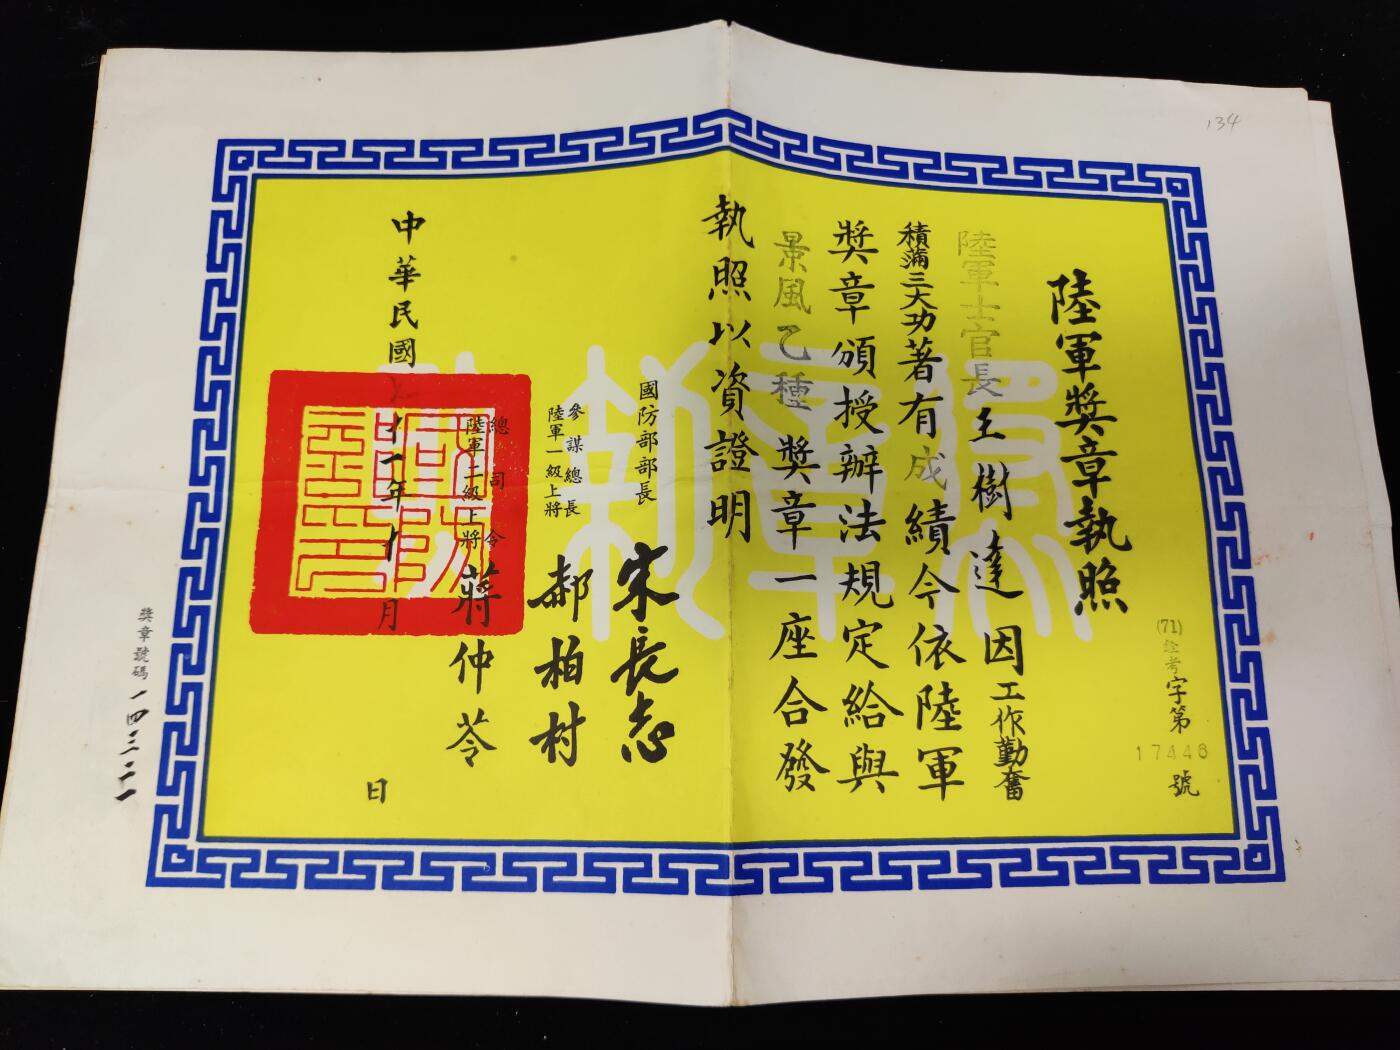 134
陸軍獎章執照
(71)銓考字第17446號
陸軍士官長王樹達因工作勤奮
積滿三大功著有成績今依陸軍
獎章頒授辦法規定給與
景風乙種獎章一座合發
執照以資證明
國防部部長宋長志
參謀總長
陸軍一級上將郝柏村
總司令
陸軍二級上將蔣仲苓
中華民國七十一年十月日
獎章號碼一四三二一
獎章執照